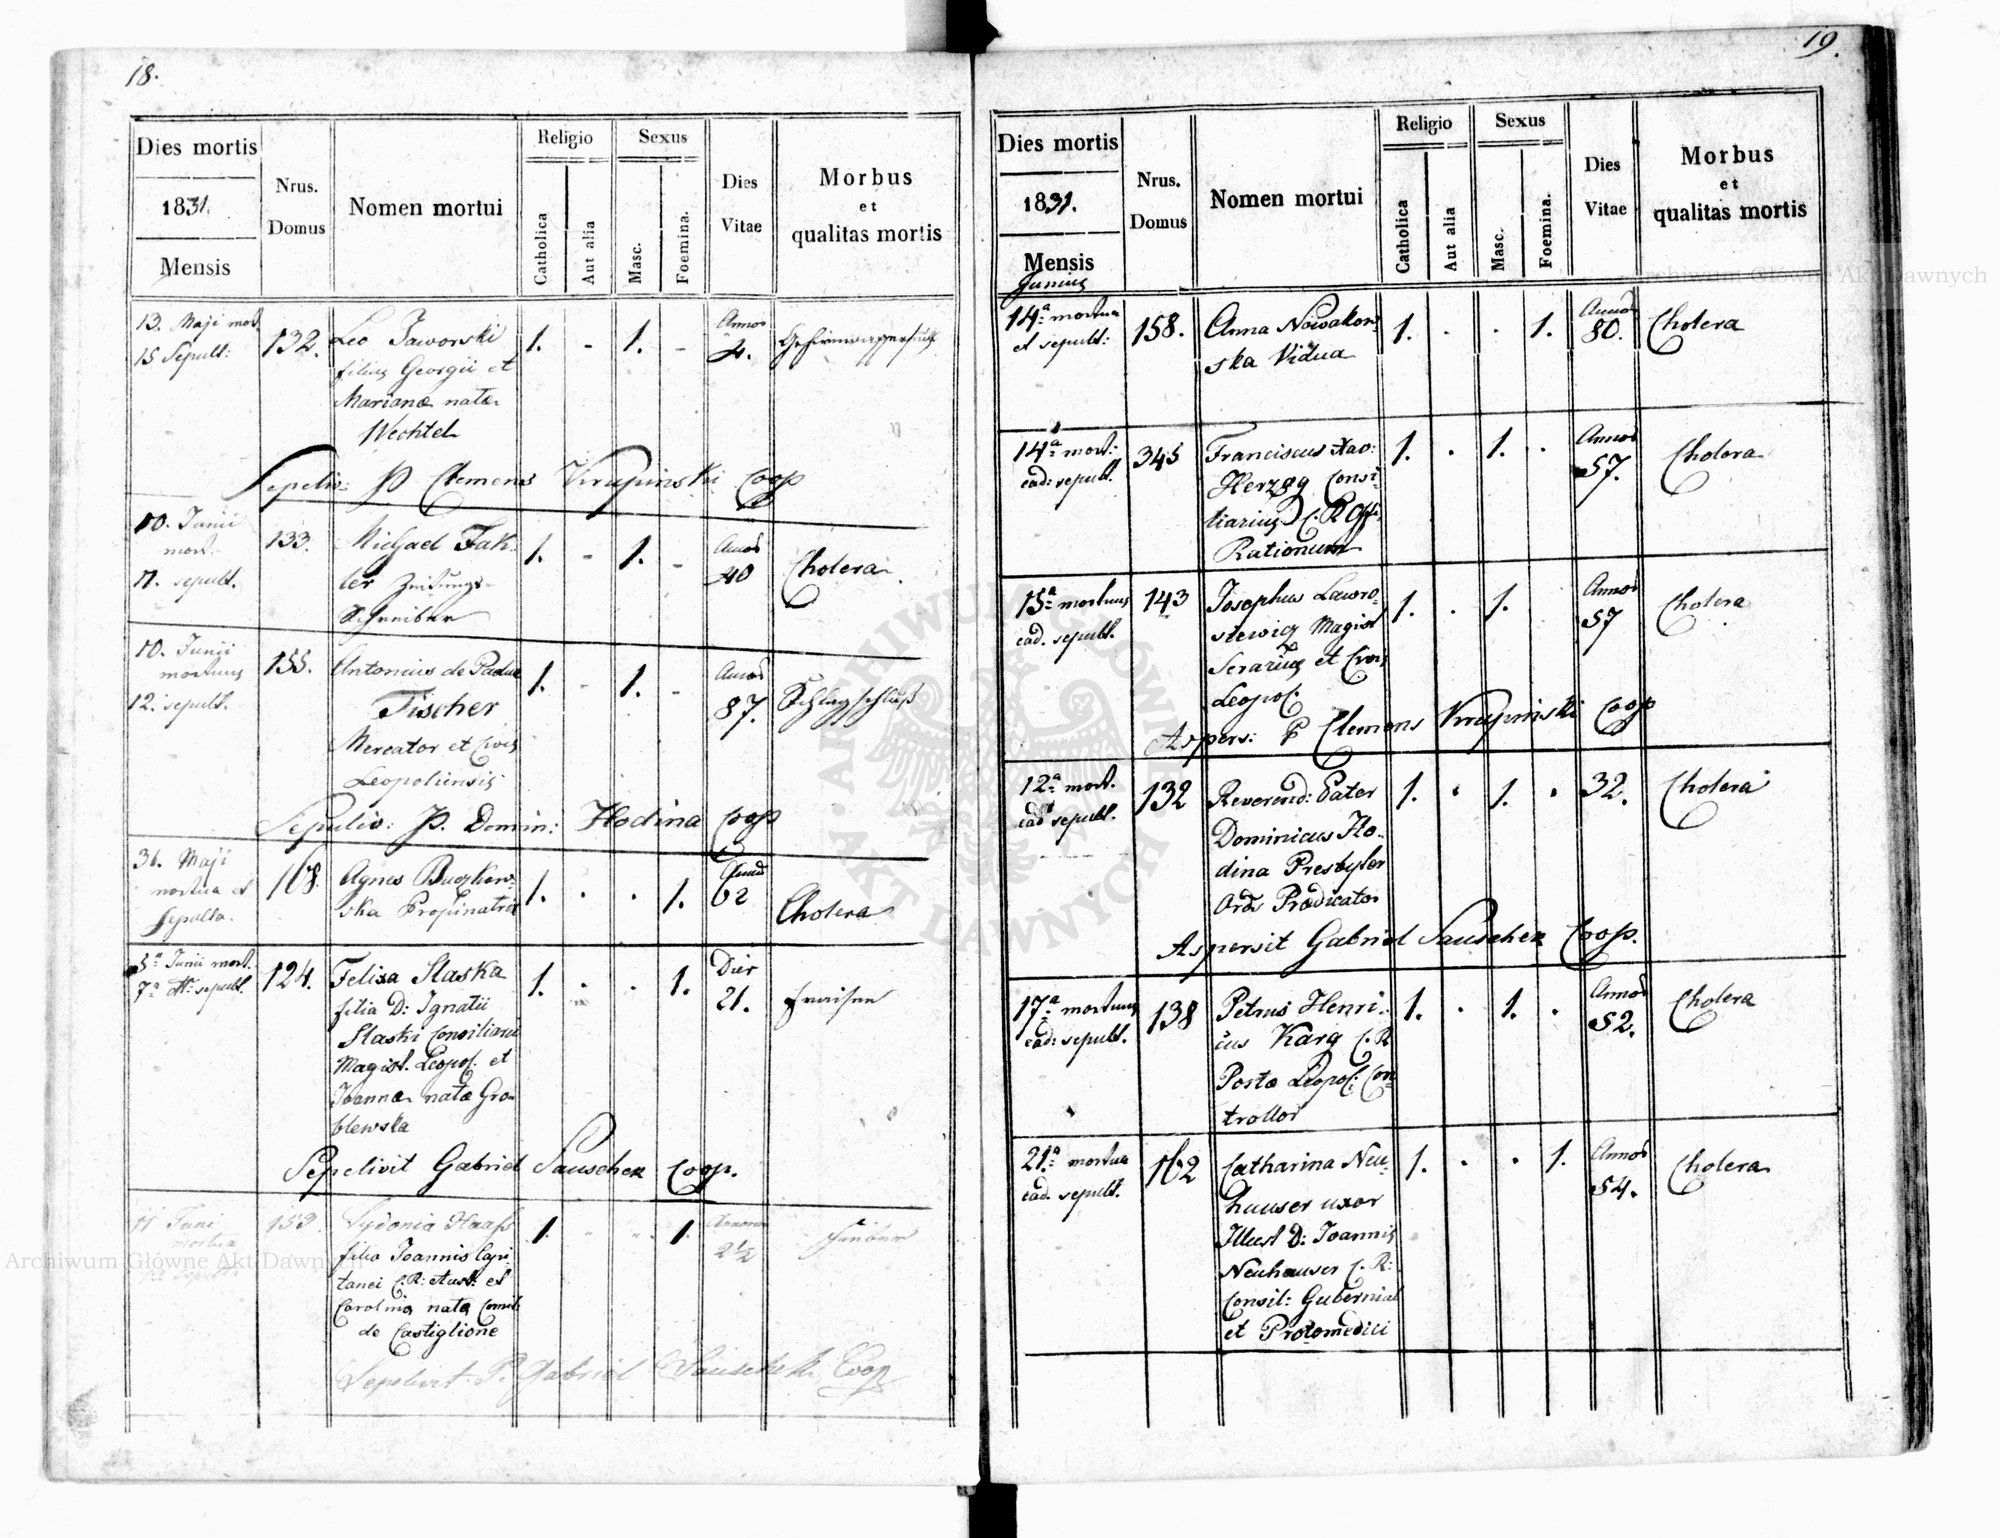 18.
Dies mortis
1831.
Mensis
Nrus.
Domus
Nomen mortui
Religio
Catholica
Aut alia
Sexus
Masc.
Foemina.
Dies
Vitae
Morbus
et
qualitas mortis
13. Maji mort
15 Sepult:
132.
Leo Jaworski
filius Georgii et
Marianæ natæ
Wechtel
1. - 1. -
Annor
4.
Sepeliv: P Clemens Krupinski Coop
10. Junii
mort.
11. sepult.
133.
Michael Fak-
ler Zeitungs-
Schreiber
1. - 1. -
Annor
40
Cholera.
10. Junii
mortuus
12. sepult.
155.
Antonius de Padua
Fischer
Mercator et Civis
Leopoliensis
1. - 1. -
Annor
87.
Schlagfluß
Sepeliv: P. Domin: Hodina Coop
31. Maji
mortua et
sepulta.
168.
Agnes Buczkow-
ska Propinatrix
1. . . 1.
Annor
62
Cholera
5a Junii mort.
7a sepult.
124.
Felixa Slaska
filia D: Ignatii
Slaski Consiliarii
Magist. Leopol. et
Joannæ natæ Gro-
blewska
1. . . 1.
Dier
21.
Fraisen
Sepelivit Gabriel Sauschek Coop.
11 Juni
mortua
153.
Sydonia Haass
filia Joannis Capi-
tanei C: R: Aust: et
Carolina nata Comit:
de Castiglione
1. . . 1.
Annorum
2½
Sepelivit P. Gabriel Sauschek Coop
19.
Dies mortis
1831.
Mensis
Junius
Nrus.
Domus
Nomen mortui
Religio
Catholica
Aut alia
Sexus
Masc.
Foemina.
Dies
Vitae
Morbus
et
qualitas mortis
14a mortua
et sepult:
158.
Anna Nowakow-
ska Vidua
1. . . 1.
Annor
80.
Cholera
14a mort:
ead: sepult.
345
Franciscus Xav:
Herzog Consi-
liarius C. R. Offi.
Rationum
1. . 1. .
Annor
57.
Cholera
15a mortuus
ead. sepult.
143
Josephus Lawro-
siewicz Magist
Serarius et Civis
Leopol.
1. . 1.
Annor
57
Cholera
Aspers: P Clemens Krupinski Coop
12a mort.
ead sepult.
132
Reverend: Pater
Dominicus Ho-
dina Presbyter
Ords Prædicator
1. . 1. .
32.
Cholera
Aspersit Gabriel Sauschek Coop.
17a mortuus
ead: sepult.
138
Petrus Henri-
cus Karg C. R
Postæ Leopol: Con-
trollor
1. . 1. .
Annor
52.
Cholera
21a mortua
ead. sepult.
162
Catharina Neu-
hauser uxor
Illust D: Joannis
Neuhauser C. R:
Consil: Gubernial
et Protomedici
1. . . 1.
Annor
54.
Cholera
Archiwum Główne Akt Dawnych
Archiwum Główne Akt Dawnych
ARCHIWUM GŁÓWNE AKT DAWNYCH